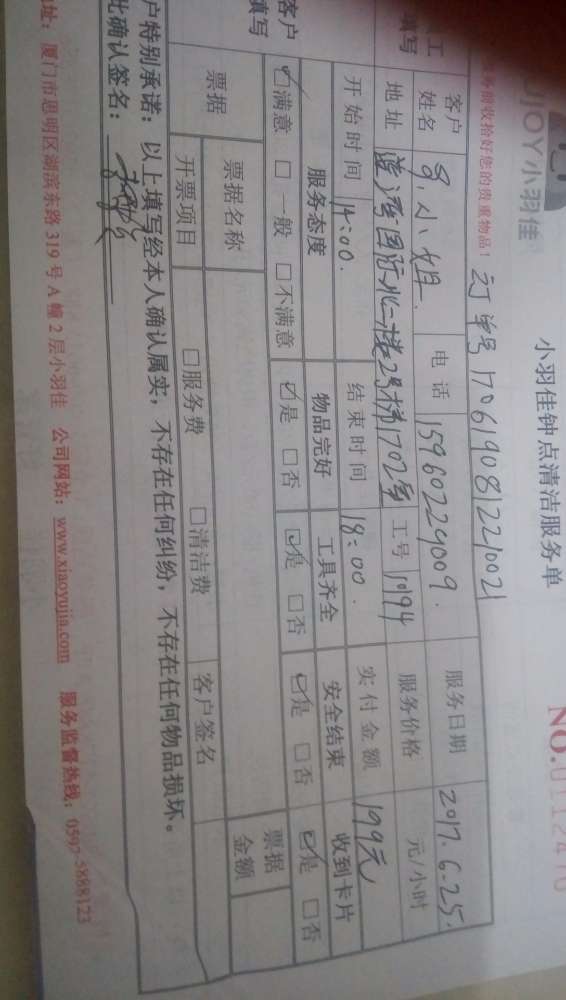 UJOY小羽佳
小羽佳钟点清洁服务单
NO.0112470
务前收拾好您的贵重物品!
订单号 1706190812210021
客户姓名 电话 15960229009 服务日期 2017.6.25.
地址 国际 二楼2号梯1702室 工号 1094 服务价格 元/小时
开始时间 14:00. 结束时间 18:00. 实付金额 199元
工填写
客户填写
服务态度 物品完好 工具齐全 安全结束 收到卡片
☑满意 □一般 □不满意 ☑是 □否 ☑是 □否 ☑是 □否 ☑是 □否
票据 票据名称 票据金额
开票项目 □服务费 □清洁费 客户签名
户特别承诺:以上填写经本人确认属实,不存在任何纠纷,不存在任何物品损坏。
此确认签名:
址:厦门市思明区湖滨东路319号A幢2层小羽佳 公司网站:www.xiaoyujia.com 服务监督热线:0592-5888123